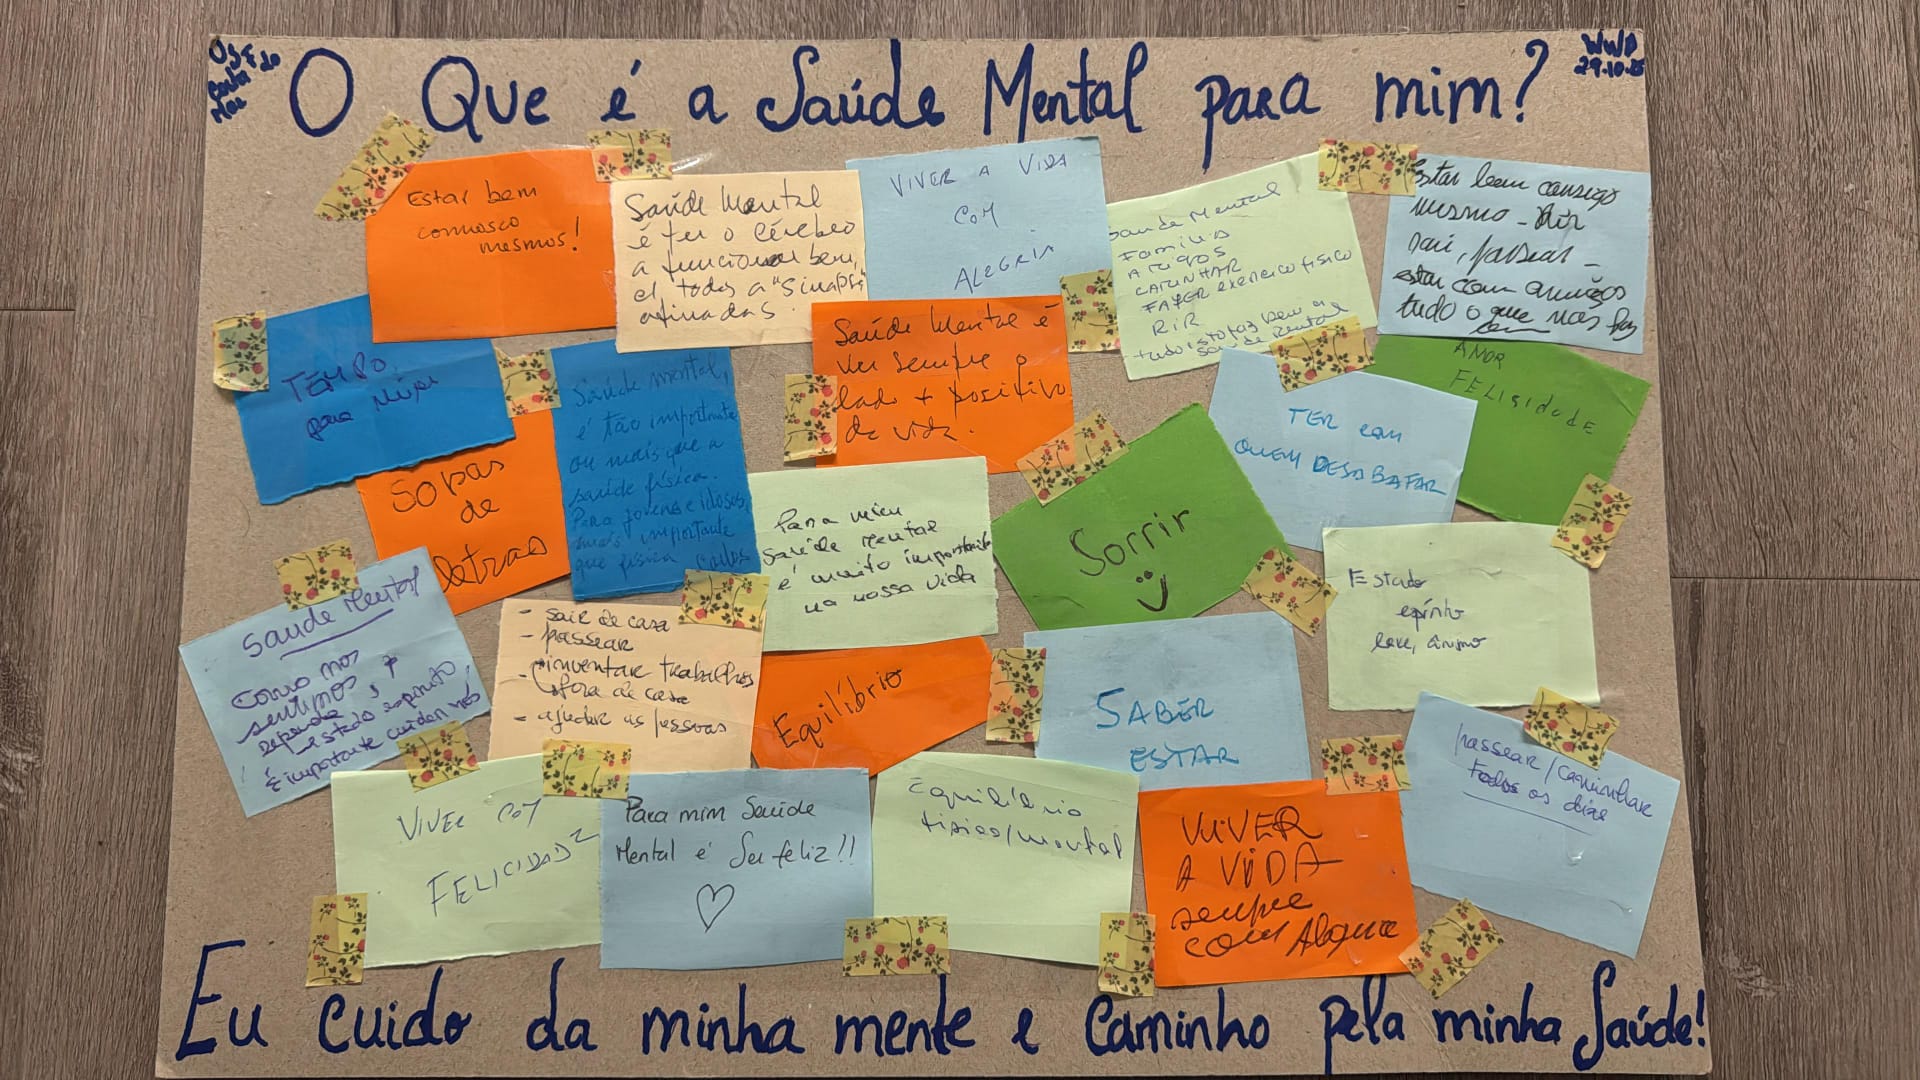 USF
WWD
29.10.25
O Que é a Saúde Mental para mim?
Estar bem
connosco
mesmos!
Saúde Mental
é ter o cérebro
a funcionar bem,
c/ todas a "sinapses
afinadas.
VIVER A VIDA
COM
ALEGRIA
Saude Mental
Familia
Amigos
CAMINHAR
FAZER exercício físico
RiR
tudo isto faz bem à
saúde Mental
Estar bem consigo
mesmo - Rir
sair, passear -
estar com amigos
tudo o que nos faz
bem
TEMPO
para Mim
Saúde mental,
é tão importante
ou mais que a
saúde física.
Para jovens e idosos,
mais importante
que física
Saúde Mental é
ver sempre o
lado + positivo
da vida.
TER com
QUEM DESABAFAR
AMOR
FELISIDADE
Sopas
de
letras
Para mim
saúde mental
é muito importante
na nossa vida
Sorrir
Estado
espírito
leve, ânimo
Saude Mental
Como nos
sentimos,
depende
estado espirito,
É importante cuidar nós
- sair de casa
- passear
- inventar trabalhos
fora de casa
- ajudar as pessoas
Equilíbrio
SABER
ESTAR
passear/caminhar
todos os dias
VIVER COM
FELICIDADE
Para mim Saúde
Mental é Ser feliz!!
Equilíbrio
físico/mental
VIVER
A VIDA
sempre
com Alegria
Eu cuido da minha mente e Caminho pela minha Saúde!